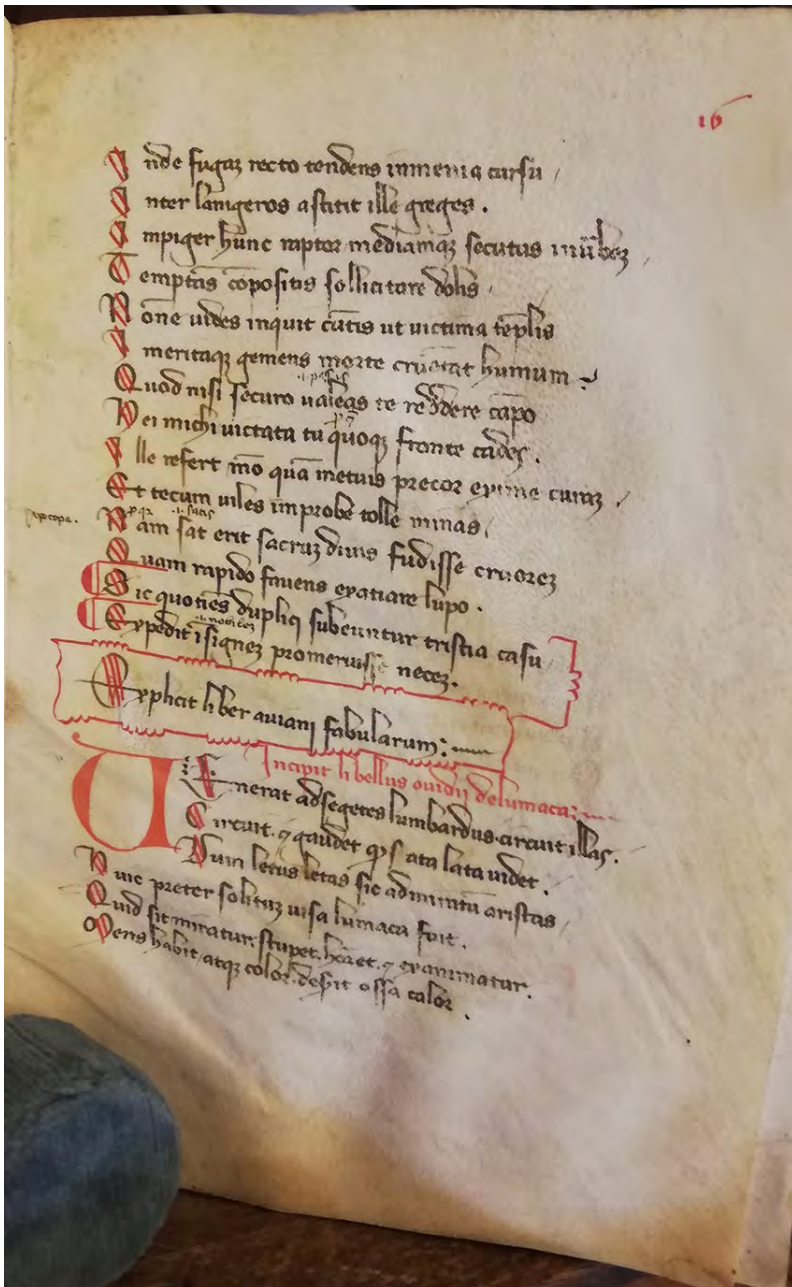 16
Vnde fugaꝫ recto tendens inmenia cursu /
Inter lanigeros astitit ille greges .
Impiger hunc raptor mediamqꝫ secutus in ūbeꝫ /
Temptās cōpositis sollicitare dolis .
Nōne uides inquit cūtis ut uictima tēplis
Imeritaqꝫ gemens morte cruētat humum ?
Quod nisi securo ualeas te reddere cāpo
Hei michi uictata tu quoqꝫ fronte cades .
Ille refert mō quā metuis precor exime curaꝫ /
Et tecum uiles improbe tolle minas /
apocopa .
Nam sat erit sacruꝫ diuis fudisse cruoreꝫ
Quam rapido fauens exatiare lupo .
Sic quotiēs dupliq subeuntur tristia casu
Expedit īsigneꝫ promeruisse neceꝫ .
Explicit liber auiani fabularum :
Incipit libellus ouidij delumaca :
VEnerat adsegetes lumbardus circuit illas .
Circuit . ⁊ gaudet ꝙ sata lata uidet .
Dum letus letas sic admiratū aristas /
Huic preter solituꝫ uisa lumaca fuit .
Quid sit miratur . stupet . heret . ⁊ exanimatur .
Mens habit atqꝫ color . desit ossa calor .